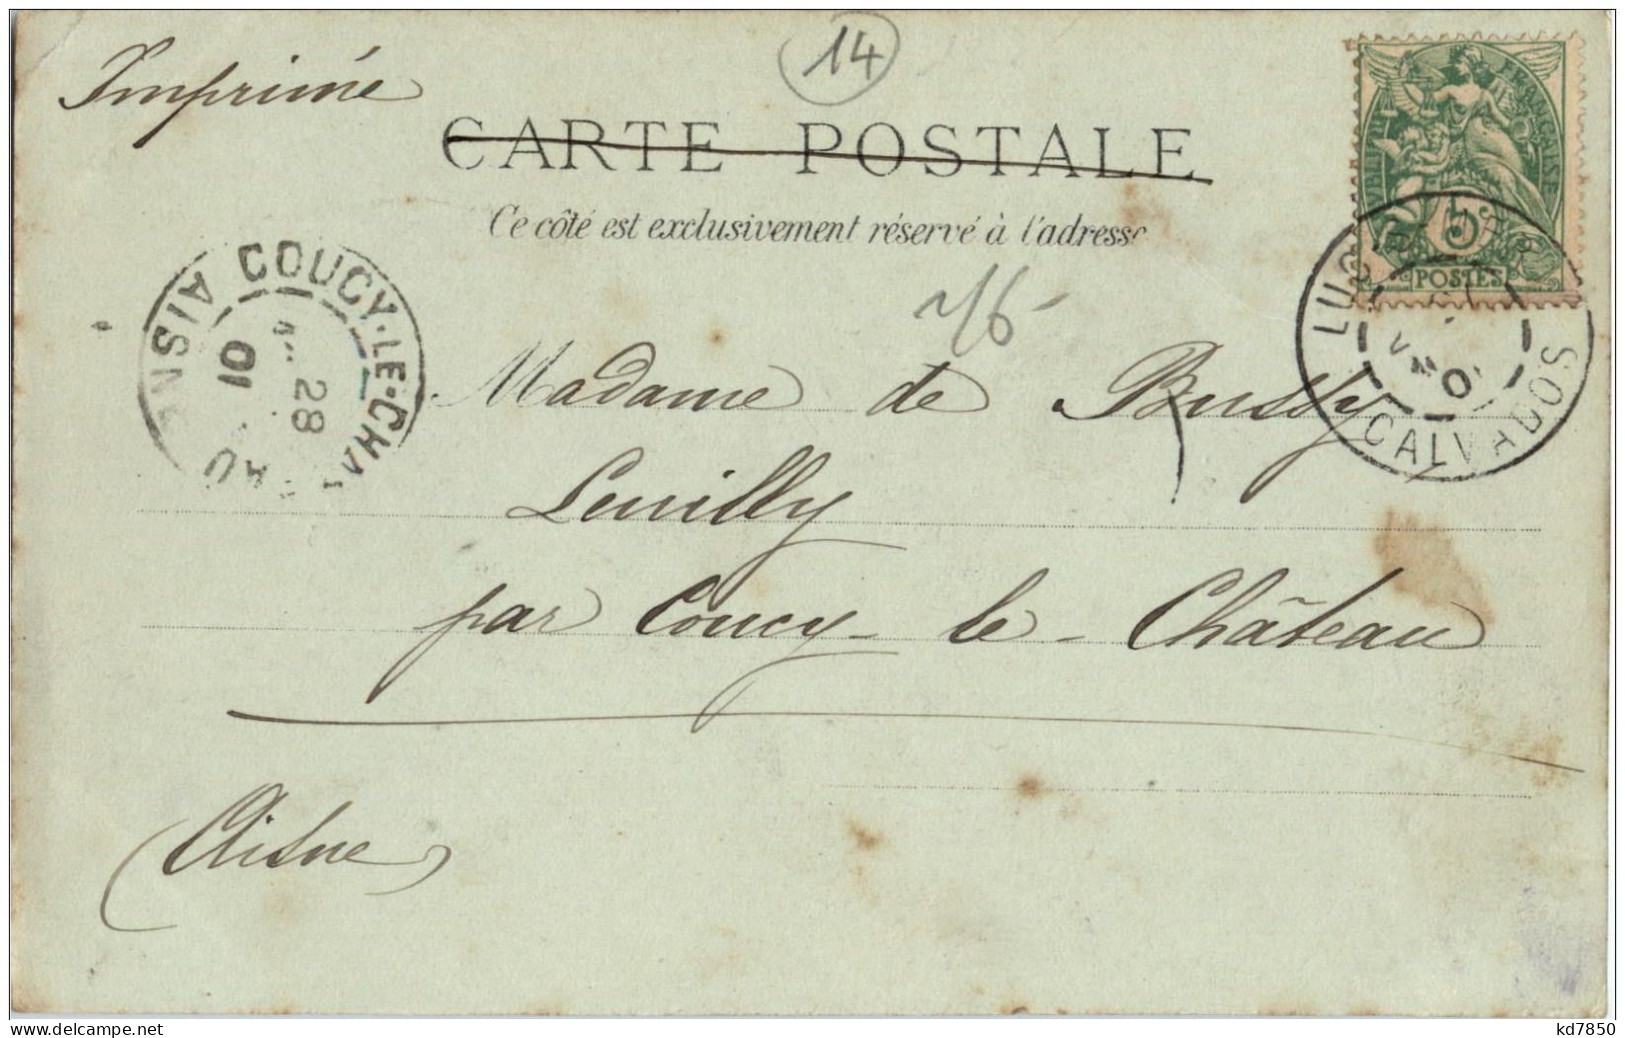 Imprimé
14
CARTE POSTALE
Ce côté est exclusivement réservé à l'adresse
RÉPUBLIQUE FRANÇAISE
5c
POSTES
CALVADOS
COUCY-LE-CHATEAU
AISNE
28
01
Madame de Bussy
Leuilly
par Coucy-le-Château
(Aisne)
www.delcampe.net
kd7850